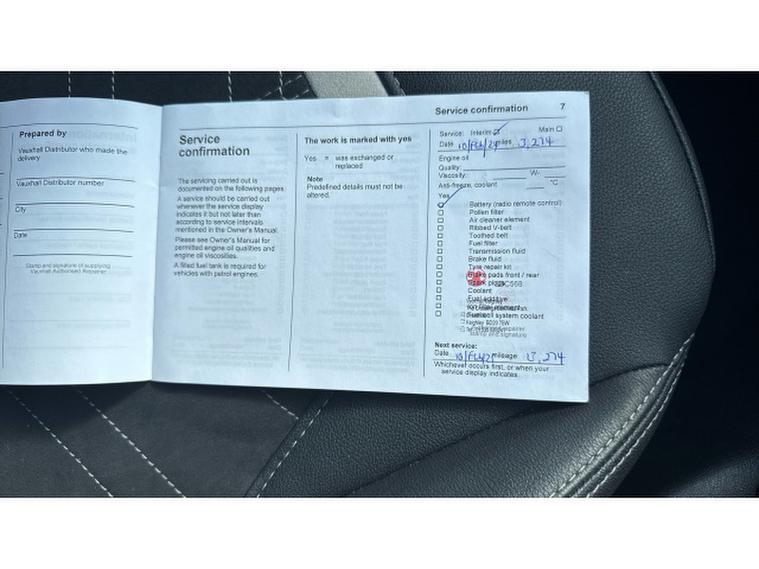 Prepared by
Vauxhall Distributor who made the
delivery
Vauxhall Distributor number
City
Date
Stamp and signature of supplying
Vauxhall Authorised Repairer
Service
confirmation
The servicing carried out is
documented on the following pages.
A service should be carried out
whenever the service display
indicates it but not later than
according to service intervals
mentioned in the Owner's Manual.
Please see Owner's Manual for
permitted engine oil qualities and
engine oil viscosities.
A filled fuel tank is required for
vehicles with petrol engines.
The work is marked with yes
Yes = was exchanged or
replaced
Note
Predefined details must not be
altered.
Service confirmation 7
Service: Interim Main
Date 10/Feb/24 miles 3,274
Engine oil
Quality:
Viscosity: W-
Anti-freeze, coolant °C
Yes
Battery (radio remote control)
Pollen filter
Air cleaner element
Ribbed V-belt
Toothed belt
Fuel filter
Transmission fluid
Brake fluid
Tyre repair kit
Brake pads front / rear
Coolant
Fuel additive
Fuel cell system coolant
stamp and signature
Next service:
Date 10/Feb/ mileage 13,274
Whichever occurs first, or when your
service display indicates.